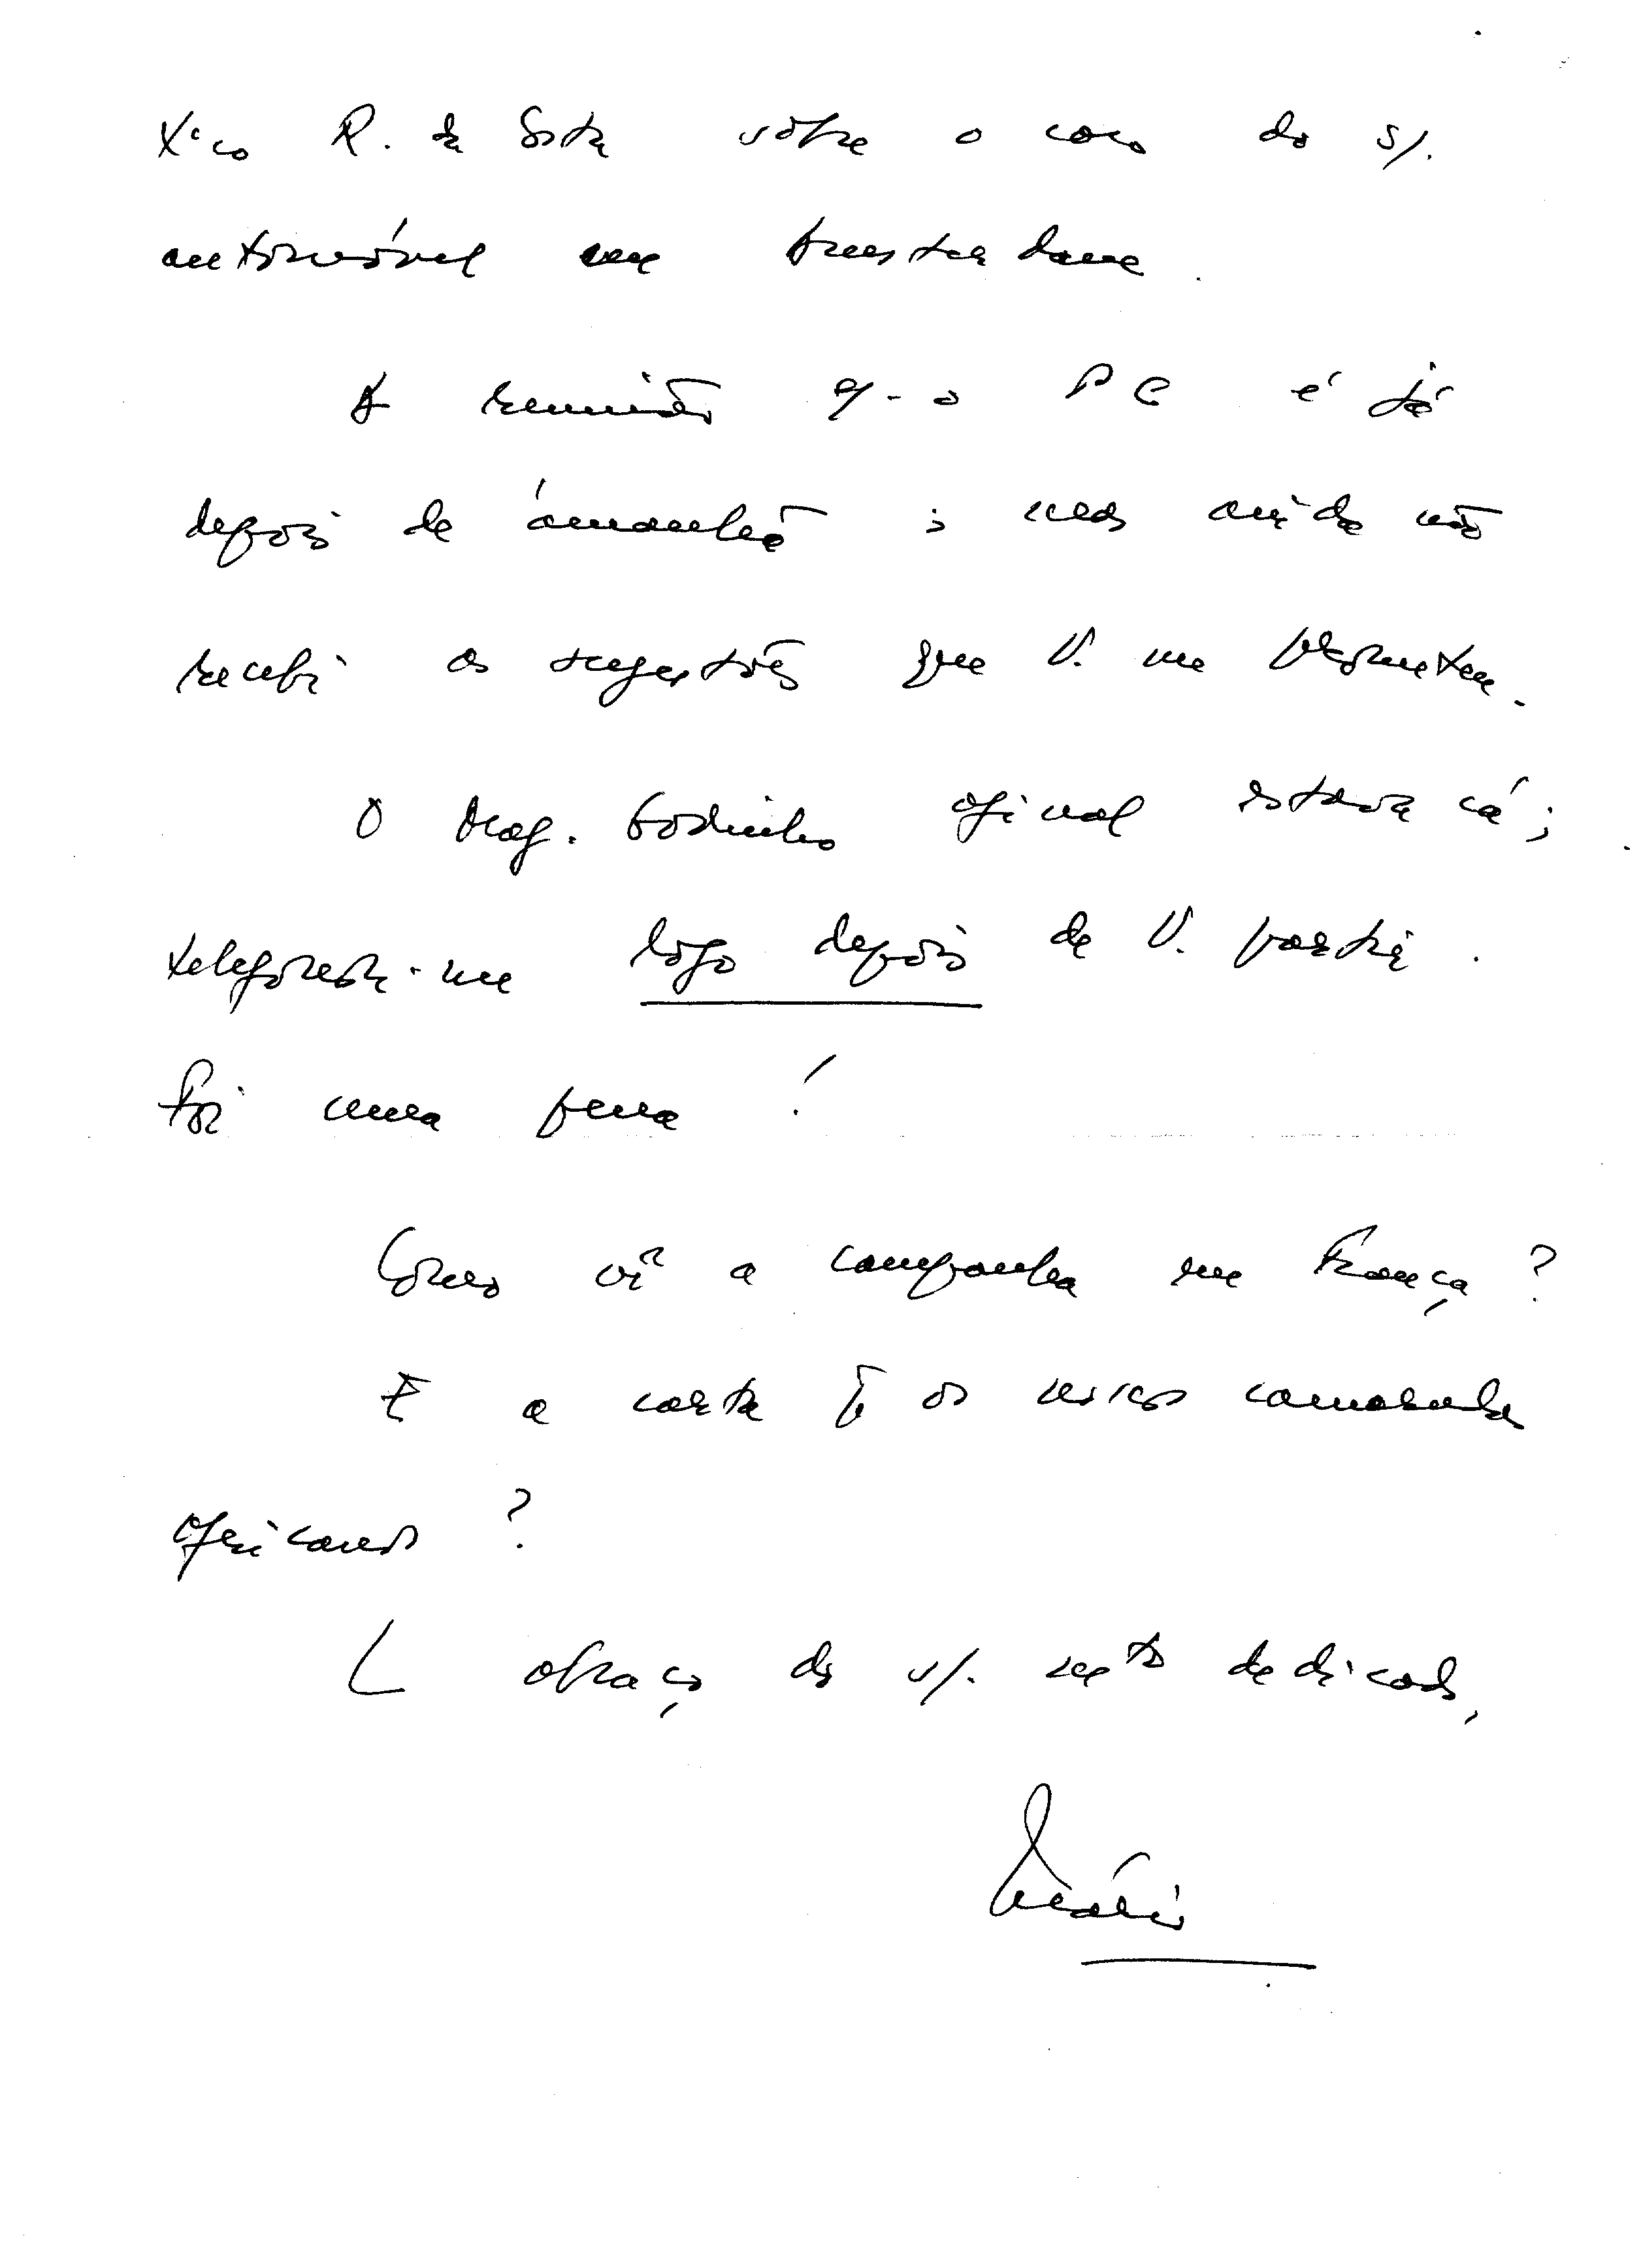 Xico R. da Costa sobre o caso do s/.
automóvel em Amsterdame.
A reunião c/- o PC é já
depois de ámanhã; mas ainda não
recebi as sugestões que V. me prometeu.
O Mag. Godinho afinal estava cá;
telefonou-me logo depois de V. partir.
Foi uma pena!
Como vê a campanha em França?
E a carta p̃ os nossos camaradas
africanos?
abraço do s/. mto dedicado,
Mário